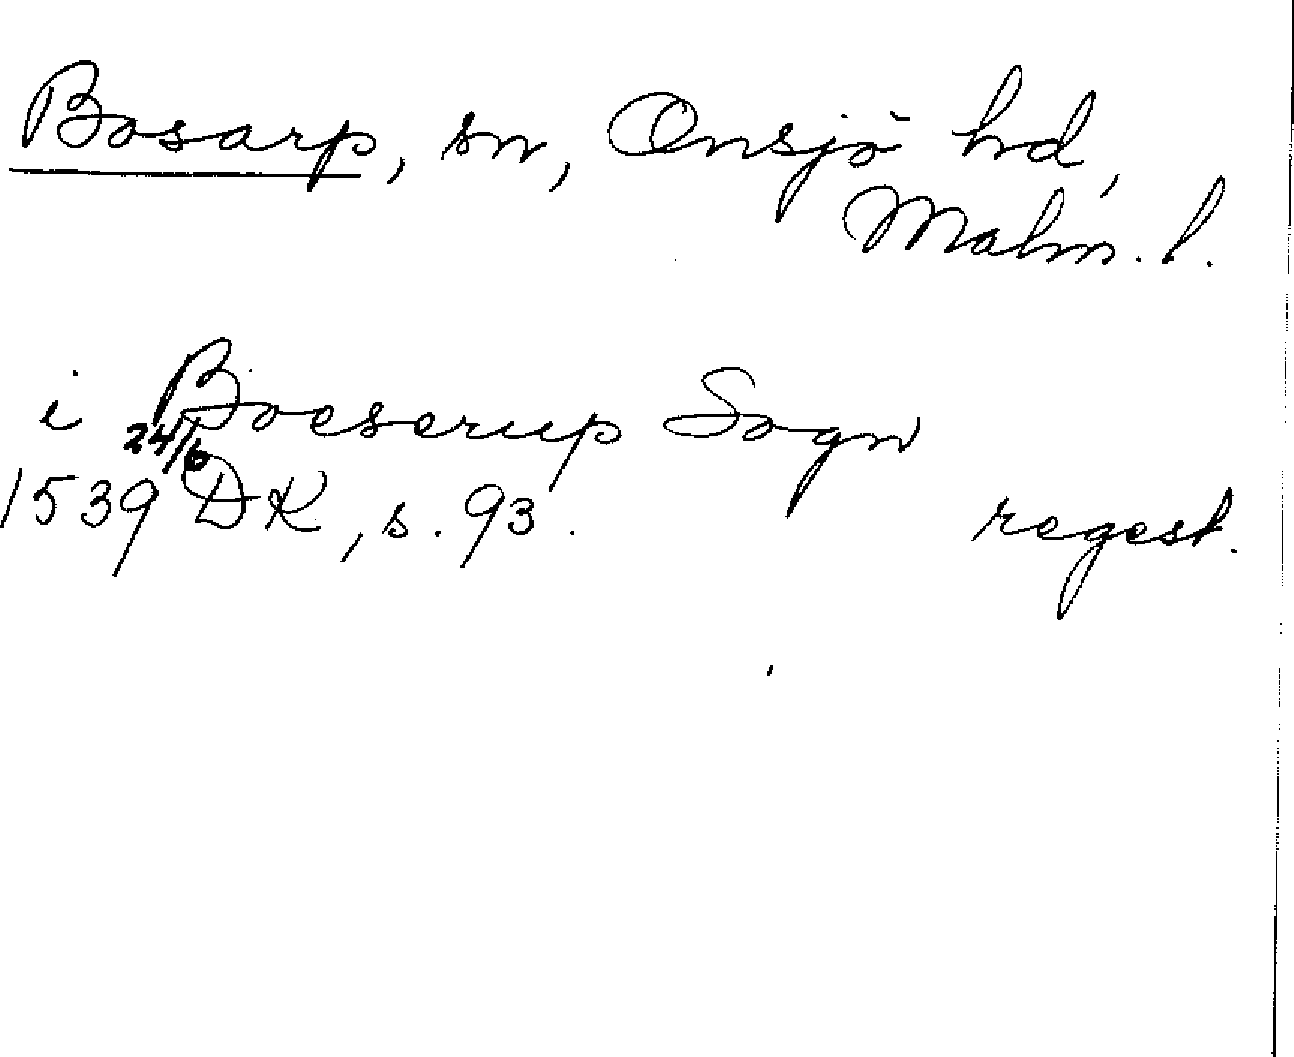 Bosarp, sn, Onsjö hd,
Malm. l.
i Boeserup Sogn
1539 24/6 DK, s. 93.
regest.